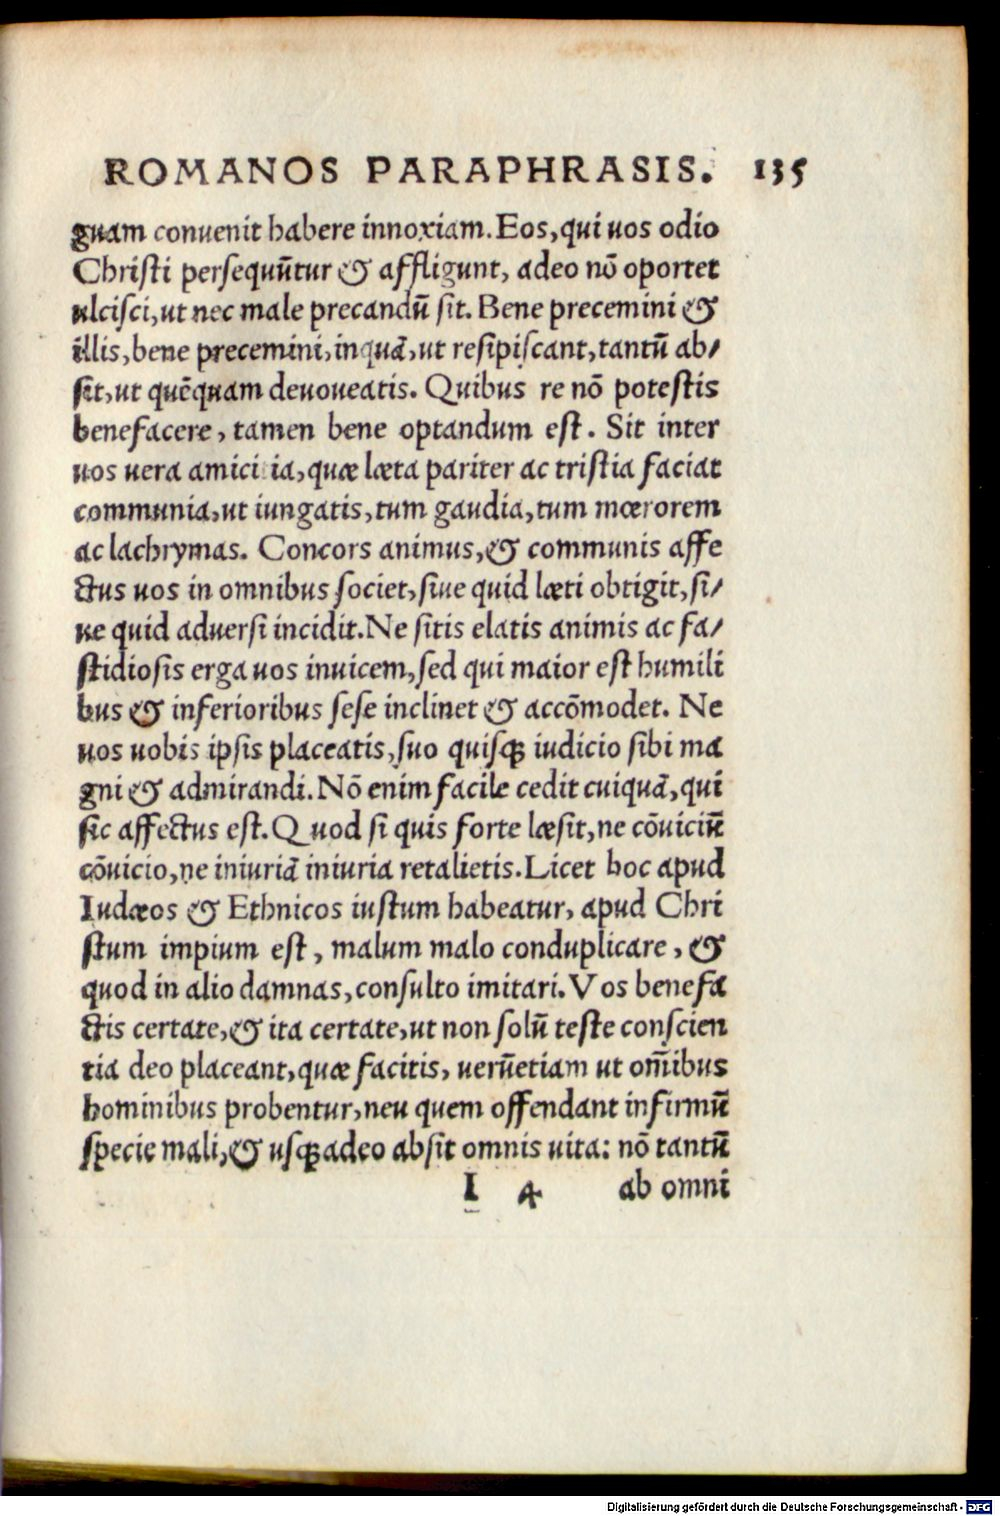 ROMANOS PARAPHRASIS. 135
guam conuenit habere innoxiam. Eos, qui uos odio
Christi persequūtur & affligunt, adeo nō oportet
ulcisci, ut nec male precandū sit. Bene precemini &
illis, bene precemini, inquā, ut resipiscant, tantū ab/
sit, ut quēquam deuoueatis. Quibus re nō potestis
benefacere, tamen bene optandum est. Sit inter
uos uera amicitia, quæ læta pariter ac tristia faciat
communia, ut iungatis, tum gaudia, tum mœrorem
ac lachrymas. Concors animus, & communis affe
ctus uos in omnibus societ, siue quid læti obtigit, si/
ue quid aduersi incidit. Ne sitis elatis animis ac fa/
stidiosis erga uos inuicem, sed qui maior est humili
bus & inferioribus sese inclinet & accōmodet. Ne
uos uobis ipsis placeatis, suo quisq; iudicio sibi ma
gni & admirandi. Nō enim facile cedit cuiquā, qui
sic affectus est. Quod si quis forte læsit, ne cōuiciū
cōuicio, ne iniuriā iniuria retalietis. Licet hoc apud
Iudæos & Ethnicos iustum habeatur, apud Chri
stum impium est, malum malo conduplicare, &
quod in alio damnas, consulto imitari. Vos benefa
ctis certate, & ita certate, ut non solū teste conscien
tia deo placeant, quæ facitis, uerūetiam ut om̄ibus
hominibus probentur, neu quem offendant infirmū
specie mali, & usq; adeo absit omnis uita: nō tantū
I 4 ab omni
Digitalisierung gefördert durch die Deutsche Forschungsgemeinschaft - DFG